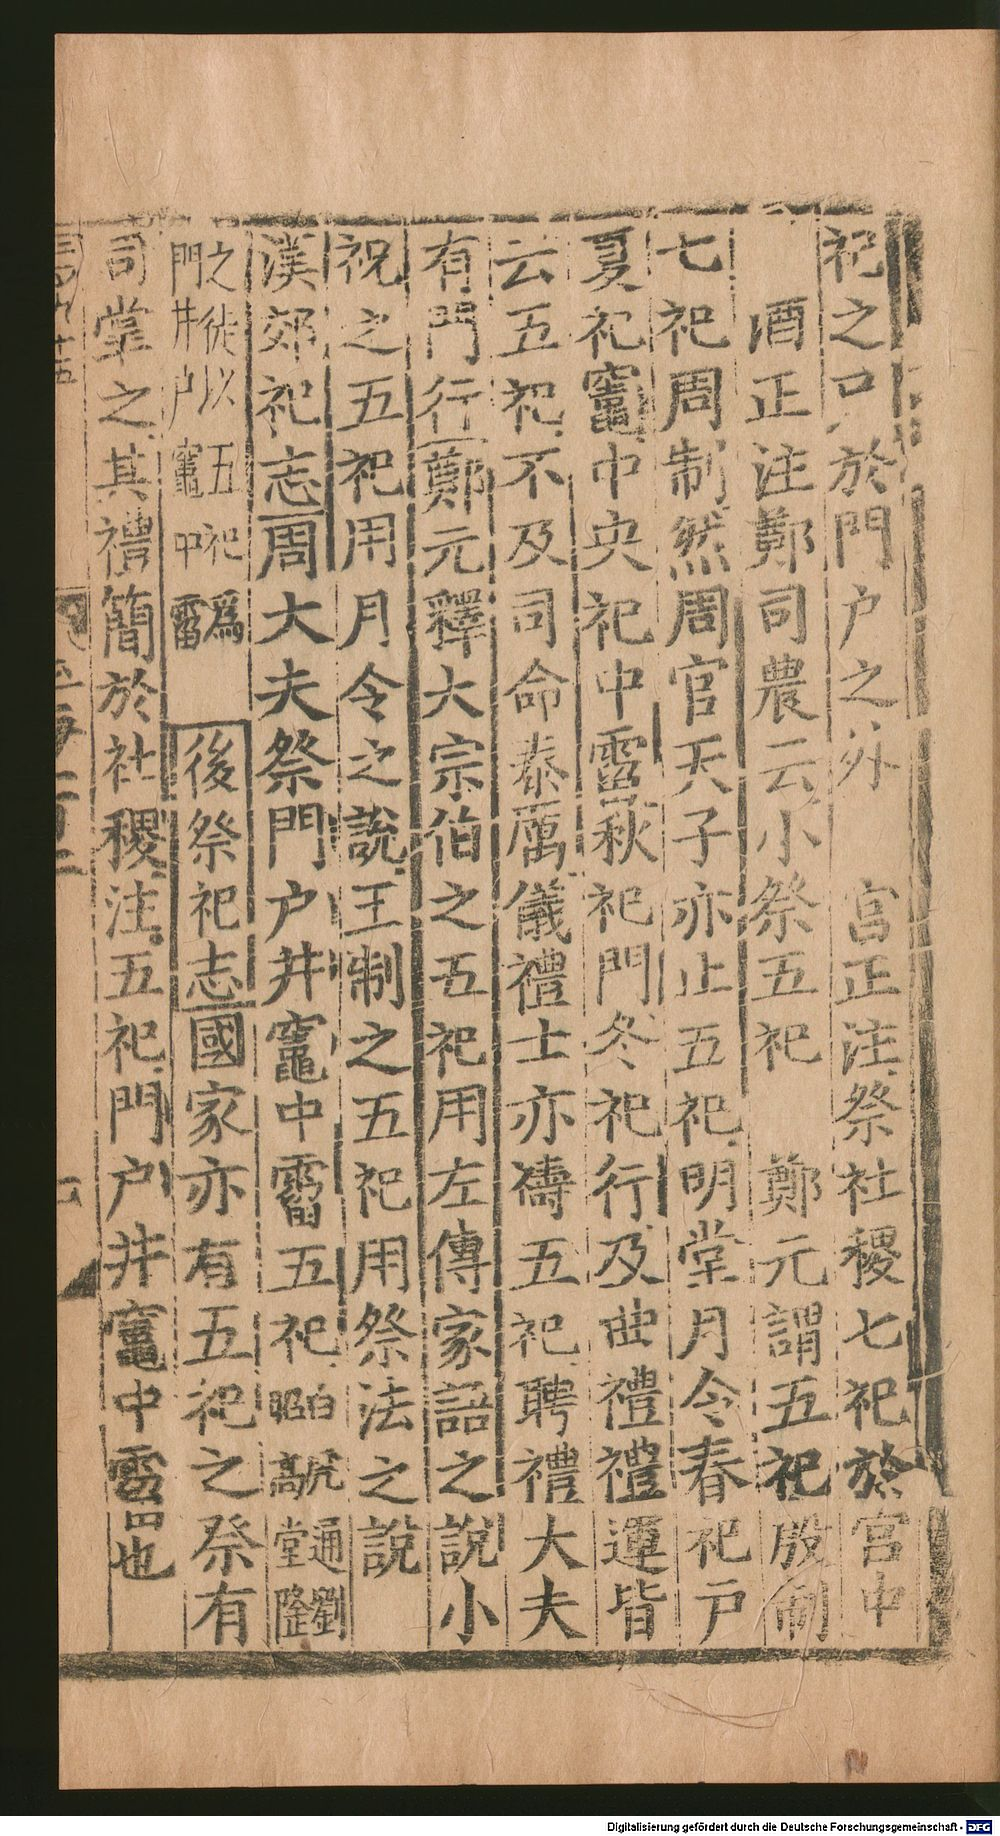 祀之口於門户之外　宮正注祭社稷七祀於宮中
酒正注鄭司農云小祭五祀　鄭元謂五祀殷制
七祀周制然周官天子亦止五祀明堂月令春祀戸
夏祀竈中央祀中霤秋祀門冬祀行及曲禮禮運皆
云五祀不及司命泰厲儀禮士亦禱五祀聘禮大夫
有門行鄭元釋大宗伯之五祀用左傳家語之說小
祝之五祀用月令之說王制之五祀用祭法之說
漢郊祀志周大夫祭門户井竈中霤五祀白虎通劉昭高堂隆
之徒以五祀爲門井户竈中霤　後祭祀志國家亦有五祀之祭有
司掌之其禮簡於社稷注五祀門户井竈中霤也
玉海一百二
Digitalisierung gefördert durch die Deutsche Forschungsgemeinschaft - DFG